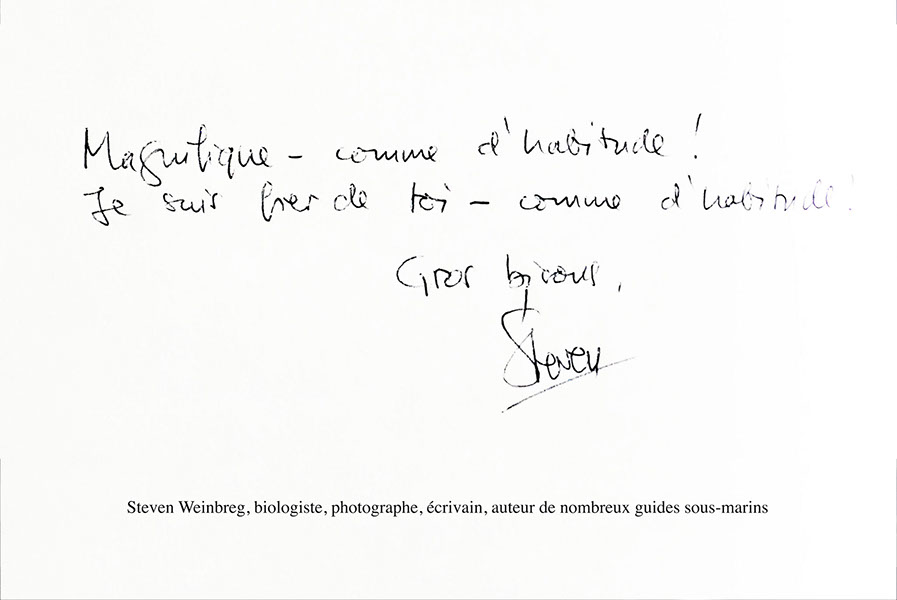 Magnifique – comme d'habitude !
Je suis fier de toi – comme d'habitude !
Gros bisous,
Steven
Steven Weinbreg, biologiste, photographe, écrivain, auteur de nombreux guides sous-marins